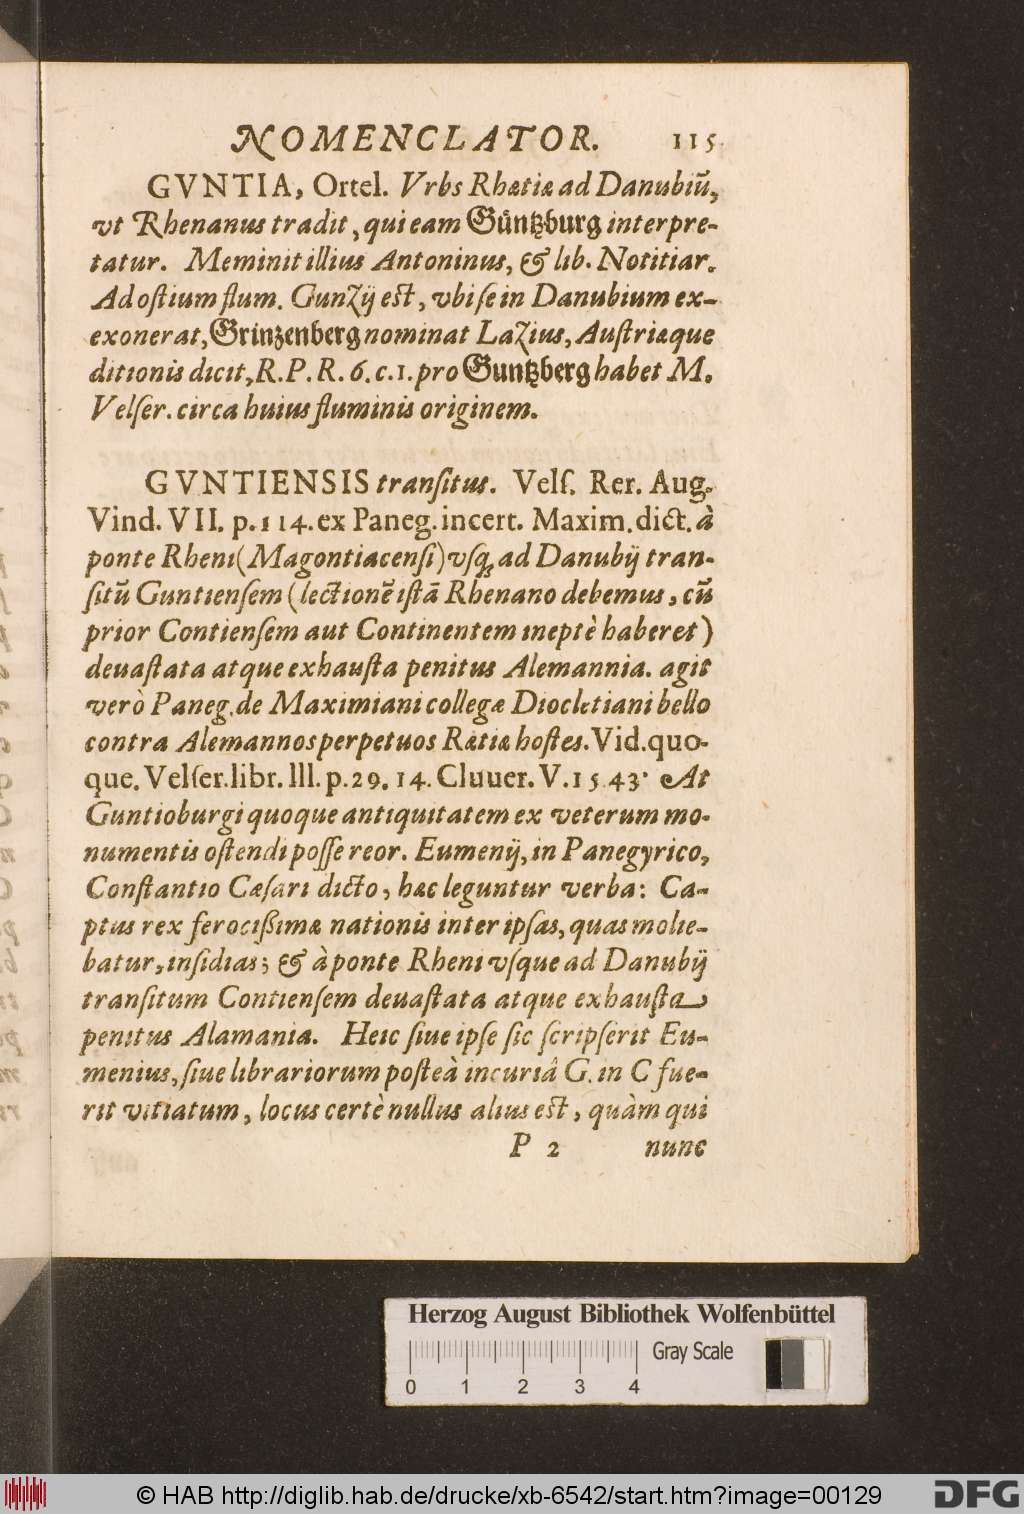 NOMENCLATOR. 115.
GVNTIA, Ortel. Vrbs Rhætiæ ad Danubiū,
vt Rhenanus tradit, qui eam Güntzburg interpre-
tatur. Meminit illius Antoninus, & lib. Notitiar.
Ad ostium flum. Gunzij est, vbi se in Danubium ex-
exonerat, Grinzenberg nominat Lazius, Austriæque
ditionis dicit, R. P. R. 6. c. 1. pro Guntzberg habet M.
Velser. circa huius fluminis originem.
GVNTIENSIS transitus. Vels. Rer. Aug.
Vind. VII. p. 114. ex Paneg. incert. Maxim. dict. à
ponte Rheni (Magontiacensi) vsq; ad Danubij tran-
sitū Guntiensem (lectionē istā Rhenano debemus, cū
prior Contiensem aut Continentem ineptè haberet)
deuastata atque exhausta penitus Alemannia. agit
verò Paneg. de Maximiani collegæ Diocletiani bello
contra Alemannos perpetuos Rætiæ hostes. Vid. quo-
que. Velser. libr. III. p. 29. 14. Cluuer. V. 15 43. At
Guntioburgi quoque antiquitatem ex veterum mo-
numentis ostendi posse reor. Eumenij, in Panegyrico,
Constantio Cæsari dicto, hæc leguntur verba: Ca-
ptus rex ferocissimæ nationis inter ipsas, quas molie-
batur, insidias; & à ponte Rheni vsque ad Danubij
transitum Contiensem deuastata atque exhausta
penitus Alamania. Heic siue ipse sic scripserit Eu-
menius, siue librariorum posteà incuriâ G. in C fue-
rit vitiatum, locus certè nullus alius est, quàm qui
P 2 nunc
Herzog August Bibliothek Wolfenbüttel
Gray Scale
0 1 2 3 4
© HAB http://diglib.hab.de/drucke/xb-6542/start.htm?image=00129
DFG